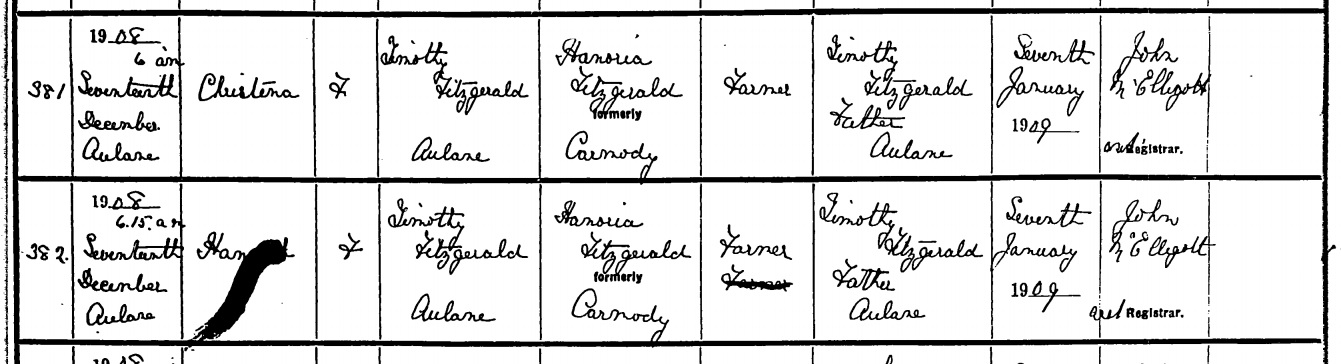 381
1908
6 am
Seventeenth
December
Aulane
Christena
F
Timothy
Fitzgerald
Aulane
Hanoria
Fitzgerald
formerly
Carmody
Farmer
Timothy
Fitzgerald
Father
Aulane
Seventh
January
1909
John
McElligott
Registrar.
382.
1908
6.15. a m
Seventeenth
December
Aulane
F
Timothy
Fitzgerald
Aulane
Hanoria
Fitzgerald
formerly
Carmody
Farmer
Farmer
Timothy
Fitzgerald
Father
Aulane
Seventh
January
1909
John
McElligott
Registrar.